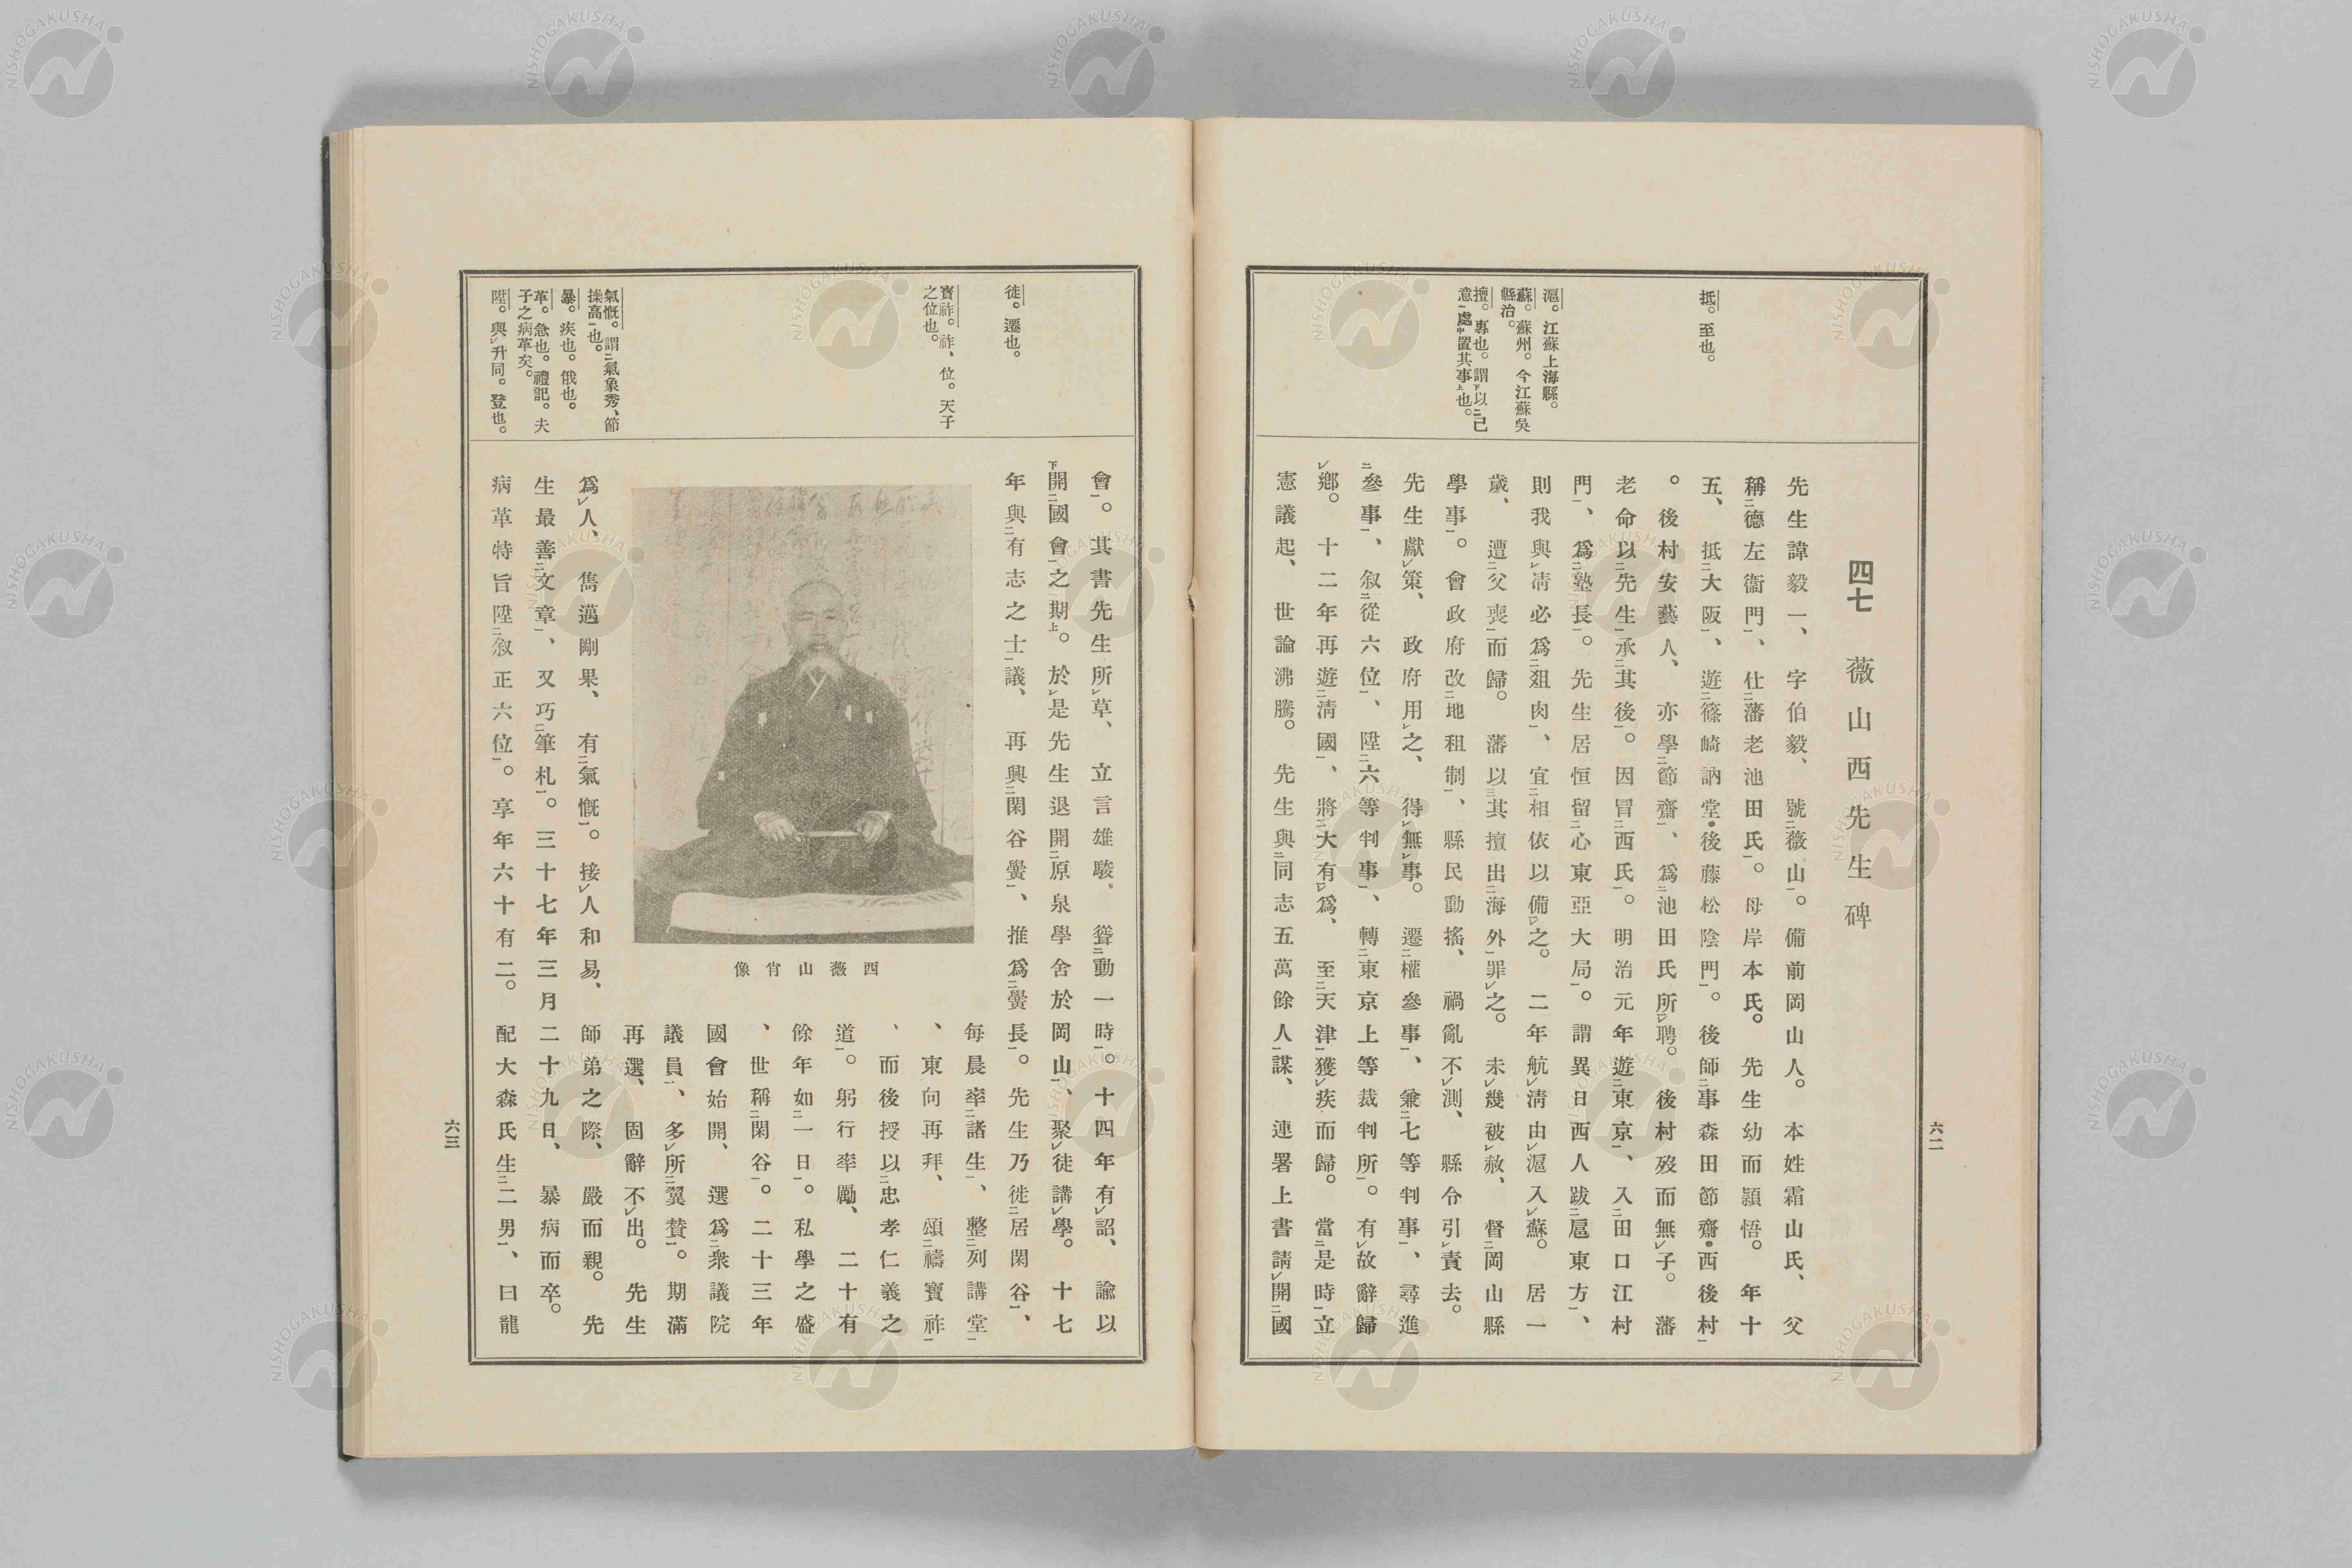 四七　薇山西先生碑
先生諱毅一、字伯毅、號二薇山一。備前岡山人。本姓霜山氏、父
稱二德左衞門一、仕二藩老池田氏一。母岸本氏。先生幼而頴悟。年十
五、抵二大阪一、遊二篠崎訥堂・後藤松陰門一。後師二事森田節齋・西後村一
。後村安藝人、亦學二節齋一、爲二池田氏所一レ聘。後村歿而無レ子。藩
老命以二先生一承二其後一。因冒二西氏一。明治元年遊二東京一、入二田口江村
門一、爲二塾長一。先生居恒留二心東亞大局一。謂異日西人跋二扈東方一、
則我與レ淸必爲二爼肉一、宜二相依以備一レ之。二年航レ淸由レ滬入レ蘇。居一
歲、遭二父喪一而歸。藩以三其擅出二海外一罪レ之。未レ幾被レ赦、督二岡山縣
學事一。會政府改二地租制一、縣民動搖、禍亂不レ測、縣令引レ責去。
先生獻レ策、政府用レ之、得レ無レ事。遷二權參事一、兼二七等判事一、尋進
二參事一、敍二從六位一、陞二六等判事一、轉二東京上等裁判所一。有レ故辭歸
レ鄕。十二年再遊二淸國一、將二大有一レ爲、至二天津一獲レ疾而歸。當二是時一立
憲議起、世論沸騰。先生與二同志五萬餘人一謀、連署上書請レ開二國
抵。至也。
滬。江蘇上海縣。
蘇。蘇州。今江蘇吳
縣治。
擅。專也。謂下以二己
意一處中置其事上也。
六二
會一。其書先生所レ草、立言雄駿、聳二動一時一。十四年有レ詔、諭以
下開二國會一之期上。於レ是先生退開二原泉學舍於岡山一、聚レ徒講レ學。十七
年與二有志之士一議、再興二閑谷黌一、推爲二黌長一。先生乃徙二居閑谷一、
每晨率二諸生一、整二列講堂一
、東向再拜、頌二禱寶祚一
、而後授以二忠孝仁義之
道一。躬行率勵、二十有
餘年如二一日一。私學之盛
、世稱二閑谷一。二十三年
國會始開、選爲二衆議院
議員一、多レ所二翼賛一。期滿
再選、固辭不レ出。先生
爲レ人、雋邁剛果、有二氣慨一。接レ人和易、師弟之際、嚴而親。先
生最善二文章一、又巧二筆札一。三十七年三月二十九日、暴病而卒。
病革特旨陞二敍正六位一。享年六十有二。配大森氏生二二男一、曰龍
西薇山肖像
徙。遷也。
寶祚。祚、位。天子
之位也。
氣慨。謂二氣象秀、節
操高一也。
暴。疾也。俄也。
革。急也。禮記。夫
子之病革矣。
陞。與レ升同。登也。
六三
NISHOGAKUSHA